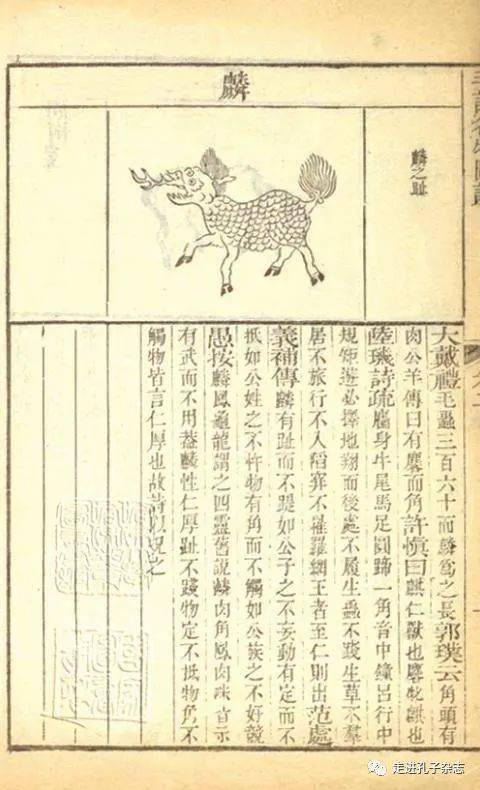 麟
麟之趾
大戴禮毛蟲三百六十而麟爲之長郭璞云角頭有
肉公羊傳曰有麏而角許愼曰麒仁獸也麐牝麒也
陸璣詩疏麕身牛尾馬足圓蹄一角音中鐘呂行中
規矩遊必擇地翔而後處不履生蟲不踐生草不羣
居不旅行不入穽不罹羅網王者至仁則出范處
義補傳麟有趾而不踶如公子之不妄動有定而不
抵如公姓之不忤物有角而不觸如公族之不好競
愚按麟鳳龜龍謂之四靈舊說麟肉角鳳肉咮皆示
有武而不用葢麟性仁厚趾不踐物定不抵物角不
觸物皆言仁厚也故詩以况之
走进孔子杂志